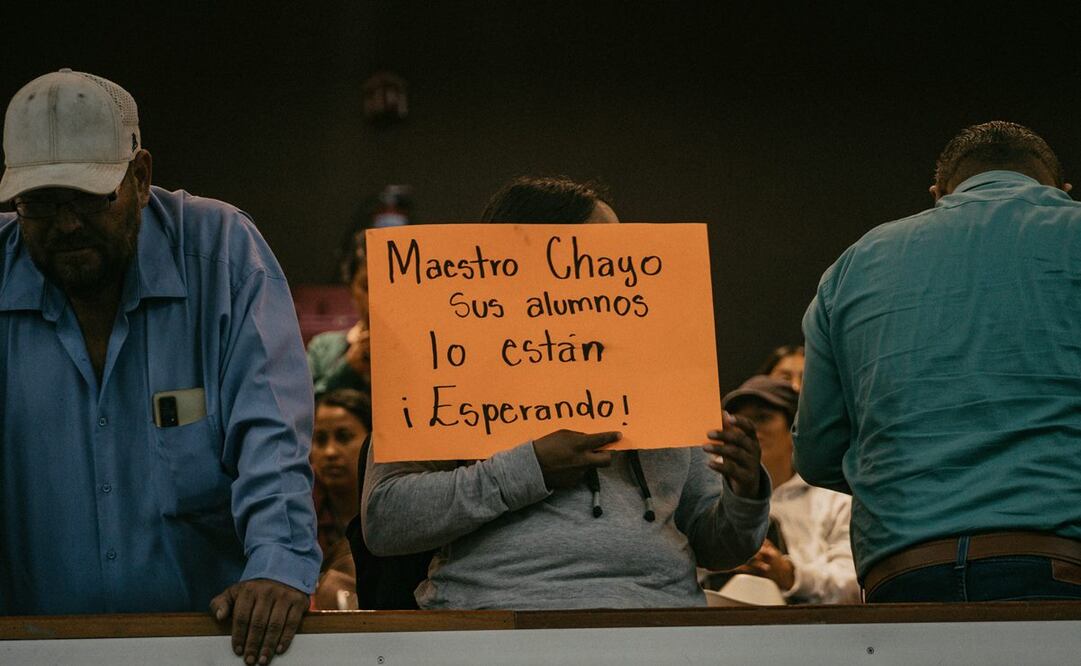 Maestro Chayo
sus alumnos
lo están
¡Esperando!